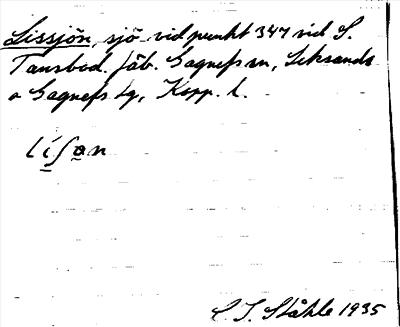 Lissjön, sjö vid punkt 347 vid S.
Tansbod. fäb. Gagnefs sn, Leksands
o Gagnefs tg, Kopp. l.
líſo̱n
C. I. Ståhle 1935